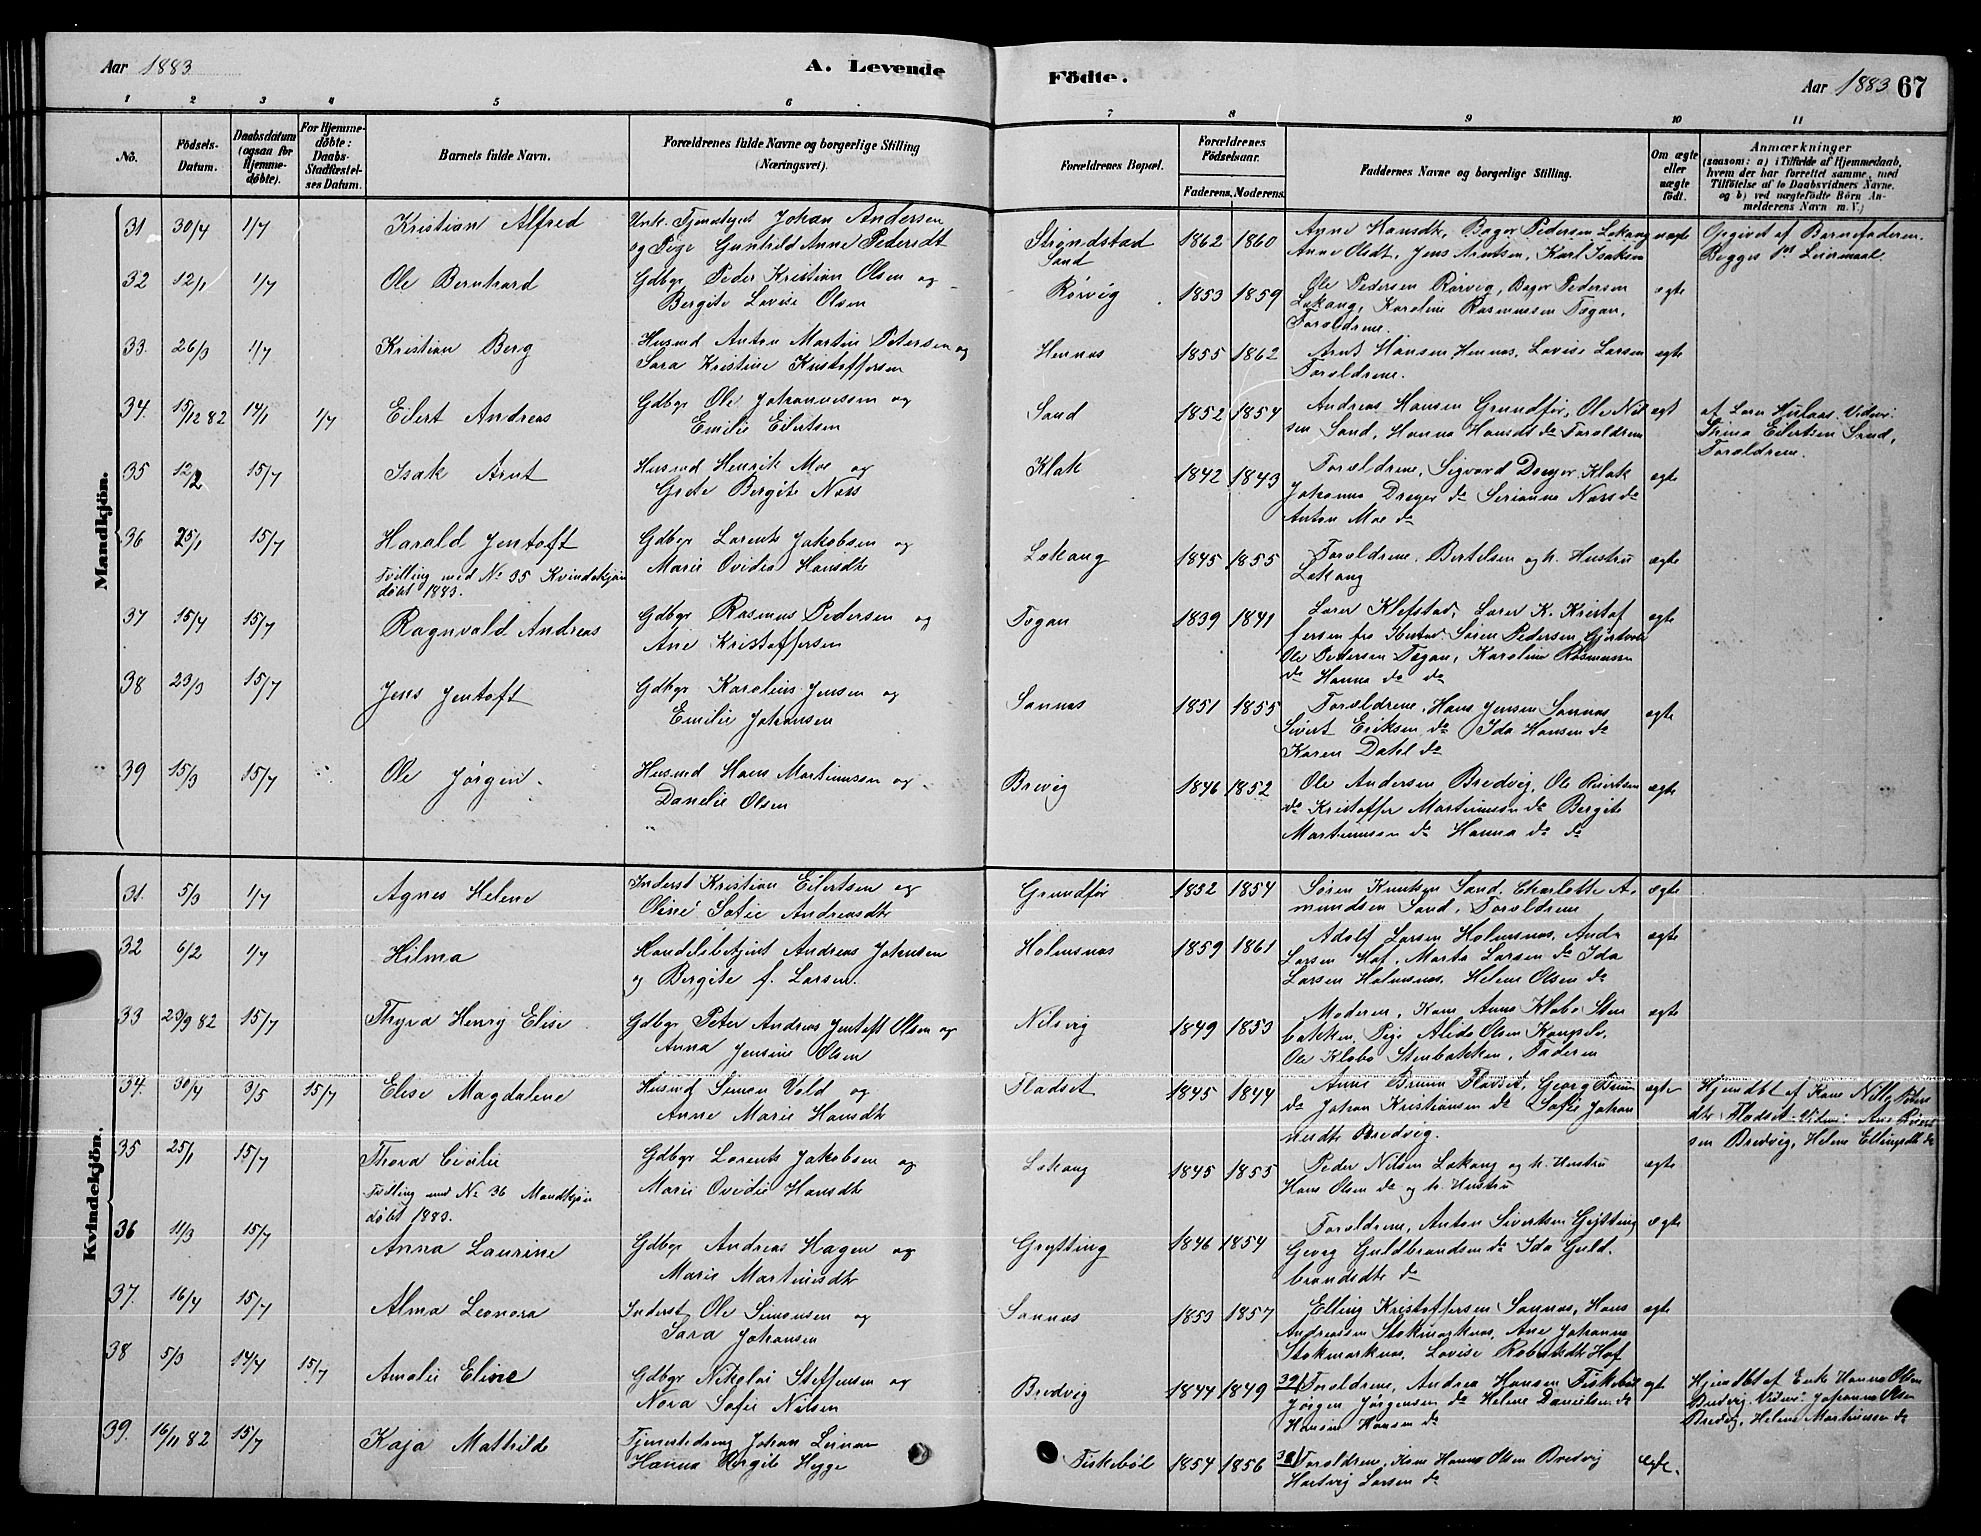 Aar 1883
A. Levende
Födte.
Aar 1883 67
1 2 3 4 5 6 7 8 9 10 11
No.
Födsels-Datum.
Daabsdatum (ogsaa for Hjemme-döbte).
For Hjemme-döbte: Daabs-Stadfæstel-ses Datum.
Barnets fulde Navn.
Forældrenes fulde Navne og borgerlige Stilling (Næringsvei).
Forældrenes Bopæl.
Forældrenes Födselsaar.
Faderens. Moderens.
Faddernes Navne og borgerlige Stilling.
Om ægte eller uægte födt.
Anmærkninger
(saasom: a) i Tilfælde af Hjemmedaab,
hvem der har forrettet samme, med
Tilföielse af to Daabsvidners Navne.
og b) ved uægtefödte Börn An-
melderens Navn m. V.)
Mandkjön.
31 30/4 1/7 Kristian Alfred
Johan Andersen
og Pige Gunhild Anne Pedersdt
Strøndstad
Sand
1862 1860
Anne Hansdt, Pedersen Løkang
Anne Olsdt, Jens Arntsen, Karl Isaksen
uægte
Opgivet af Barnefaderen.
Begges 1st Leiermaal
32 12/1 1/7 Ole Bernhard
Gdbgr Peder Kristian Olsen og
Bergite Lovise Olsen
Rørvig
1853 1859
Ole Pedersen Rørvig, Pedersen
Løkang, Karoline Rasmussen Togan,
Forældrene.
ægte
33. 26/3 1/7 Kristian Berg
Husmd Anton Martin Petersen og
Sara Kristine Kristoffersen
Hennæs
1855 1862
Arnt Hansen Hennæs, Lovise Larsen
Forældrene.
ægte
34. 15/12 82 14/1 1/7 Eilert Andreas
Gdbgr Ole Johannessen og
Emilie Eilertsen
Sand
1852 1854
Andreas Hansen Grundfør, Ole Nil
sen Sand, Hanna Hansdt do Forældrene
ægt
af Vidner:
Eilertsen Sand,
Forældrene.
35 12/2 15/7 Isak Arnt
Husmd Henrik Moe og
Grete Bergite Næss
Klak
1842 1843
Forældrene, Sigvard Dreyer Klak
Johanna Dreyer do Næss do
Anton Moe do
ægte
36 25/1 15/7 Harald Jentoft
Tvilling med No 35 Kvindekjøn
døbt 1883.
Gdbgr Lorents Jakobsen og
Marie Ovidia Hansdt
Løkang
1845 1855
Forældrene, Bertelsen og h. Hustru
Løkang
ægte
37 15/4 15/7 Ragnvald Andreas
Gdbgr Rasmus Pedersen og
Ane Kristoffersen
Togan
1839 1841
Lærer Klefstad, Lærer K. Kristof
fersen fra Søren Pedersen,
Ole Pedersen Togan, Karoline Rasmussen
do Hanna do do
ægte
38 23/3 15/7 Jens Jentoft
Gdbgr Karolius Jensen og
Emilie Johansen
Sannæs
1851 1855
Forældrene, Hans Jensen Sannæs
Sivert Eriksen do Ida Hansen do
Karen Dahl do
ægte
39 15/3 15/7 Ole Jørgen
Husmd Hans Martinussen og
Danelie Olsen
Brevig
1846 1852
Ole Andersen Bredvig, Ole
do Kristoffer Martinussen do Bergite
Martinussen do Hanna do do
ægte
Kvindekjön.
31. 5/3 1/7 Agnes Helene
Inderst Kristian Eilertsen og
Oline Sofie Andreasdt
Grundfør
1852 1854
Søren Knutsen Sand, Charlotte A-
mundsen Sand, Forældrene
ægte
32 6/2 1/7 Hilma
Handelsbetjent Andreas Johansen
og Bergite f. Larsen.
Holmsnæs
1859 1861
Adolf Larsen Holmsnæs,
Larsen Hof, Marta Larsen do Ida
Larsen Holmsnæs, Helene Olsen do
ægte
33 23/9 82 15/7 Thyra Henry Elise
Gdbgr Peter Andreas Jentoft Olsen og
Anna Jensine Olsen
Nilsvig
1849 1853
Moderen, Kone Anne Klabo Sten
bakken, Pige Alida Olsen
Ole Klabo Stenbakken, Faderen
ægte
34. 30/4 3/5 15/7 Elise Magdalene
Husmd Simon Vold og
Anne Marie Hansdt
Fladset
1845 1844
Anne Bruun Fladset, Georg Bruun
do Johan Kristiansen do Sofie Johan
nesdt Bredvig.
ægte
Hjemdbt af Kone
Fladset. Vidner: Ane
sen Bredvig, Helene Ellingsdt do
35 25/1 15/7 Thora Cicilie
Tvilling med No 36 Mandkjøn
døbt 1883.
Gdbgr Lorents Jakobsen og
Marie Ovidie Hansdt
Løkang
1845 1855
Peder Nilsen Løkang og h. Hustru
Hans Olsen do og h. Hustru
ægte
36 11/3 15/7 Anna Laurine
Gdbgr Andreas Hagen og
Marie Martinusdt
Grytting
1846 1854
Forældrene, Anton Sivertsen Grytting
Georg Guldbrandsen do Ida Guld-
brandsdt do
ægte
37. 16/4 15/7 Alma Leonora
Inderst Ole Simonsen og
Sara Johansen
Sannæs
1853 1857
Elling Kristoffersen Sannæs, Hans
Andreassen Stokmarknæs, Ane Johanna
Stokmarknæs, Lovise Hof
ægte
38 5/3 14/4 15/7 Amalie Eline
Gdbgr Nikolai Steffensen og
Nora Sofie Nilsen
Bredvig
1844 1849
39) Forældrene, Andrea Hansen Fiskebøl
Jørgen Jørgensen do Helene Danielsen do
Hansine Hansen do
ægte
Hjemdbt af Enke Hanna Olsen
Bredvig. Vidner: Johanna Olsen
Bredvig, Helene Martinussen do
39. 16/11 82 15/7 Kaja Mathilde
Tjenestedreng Johan
Hanna Bergite Hegge
Fiskebøl
1854 1856
38) Forældrene, Kone Hanna Olsen Bredvig
Hartvig Larsen do
ægte.